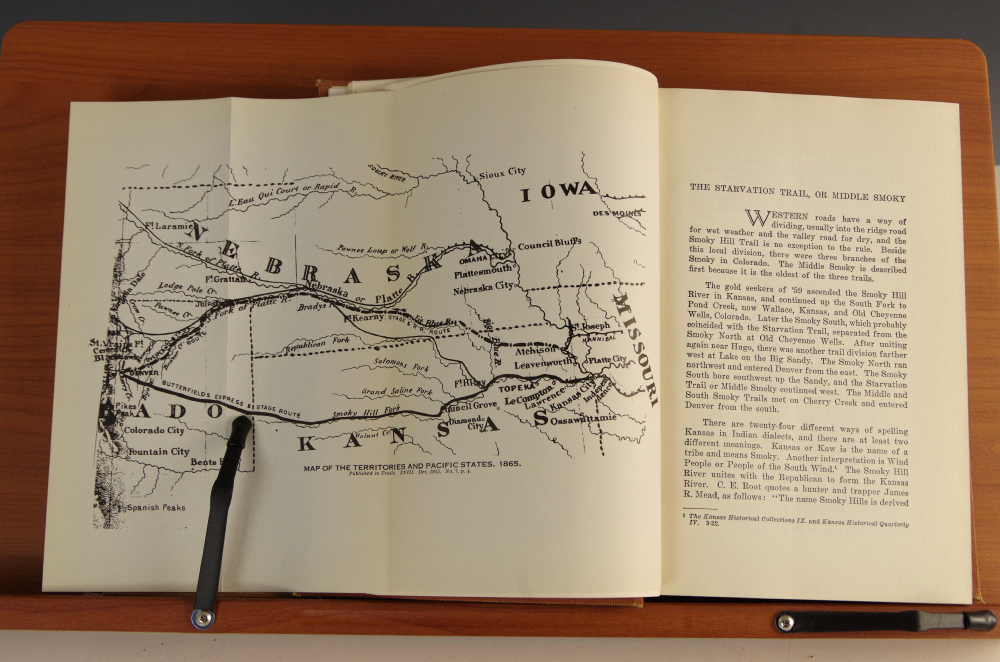 IOWA
Sioux City
L'Eau Qui Court or Rapid R.
DES MOINES
Ft. Laramie
NEBRASKA
Pawnee Loup or Wolf R.
Council Bluffs
OMAHA CITY
Plattesmouth
N Fork of Platte R.
Ft. Grattan
Nebraska City
Nebraska or Platte R.
Lodge Pole Cr.
Pawnee Cr.
S Fork of Platte R.
Ft. Kearny
STAGE & R.R. ROUTE
MISSOURI
St. Joseph
HANNIBAL
Republican Fork
Atchison
Platte City
Leavenworth
Solomons Fork
DENVER
Ft. Riley
TOPEKA
Le Compton
Lawrence
Kansas City
BUTTERFIELD'S EXPRESS & STAGE ROUTE
Grand Saline Fork
Smoky Hill Fork
Council Grove
Diamond City
Ossawattamie
ADO
KANSAS
Pikes Peak
Colorado City
Walnut Cr.
Fountain City
Bents
Spanish Peaks
MAP OF THE TERRITORIES AND PACIFIC STATES, 1865.
THE STARVATION TRAIL, OR MIDDLE SMOKY
WESTERN roads have a way of
dividing, usually into the ridge road
for wet weather and the valley road for dry, and the
Smoky Hill Trail is no exception to the rule. Beside
this local division, there were three branches of the
Smoky in Colorado. The Middle Smoky is described
first because it is the oldest of the three trails.
The gold seekers of '59 ascended the Smoky Hill
River in Kansas, and continued up the South Fork to
Pond Creek, now Wallace, Kansas, and Old Cheyenne
Wells, Colorado. Later the Smoky South, which probably
coincided with the Starvation Trail, separated from the
Smoky North at Old Cheyenne Wells. After uniting
again near Hugo, there was another trail division farther
west at Lake on the Big Sandy. The Smoky North ran
northwest and entered Denver from the east. The Smoky
South bore southwest up the Sandy, and the Starvation
Trail or Middle Smoky continued west. The Middle and
South Smoky Trails met on Cherry Creek and entered
Denver from the south.
There are twenty-four different ways of spelling
Kansas in Indian dialects, and there are at least two
different meanings. Kansas or Kaw is the name of a
tribe and means Smoky. Another interpretation is Wind
People or People of the South Wind.¹ The Smoky Hill
River unites with the Republican to form the Kansas
River. C. E. Root quotes a hunter and trapper James
R. Mead, as follows: "The name Smoky Hills is derived
¹ The Kansas Historical Collections IX, and Kansas Historical Quarterly
IV. 3-22.